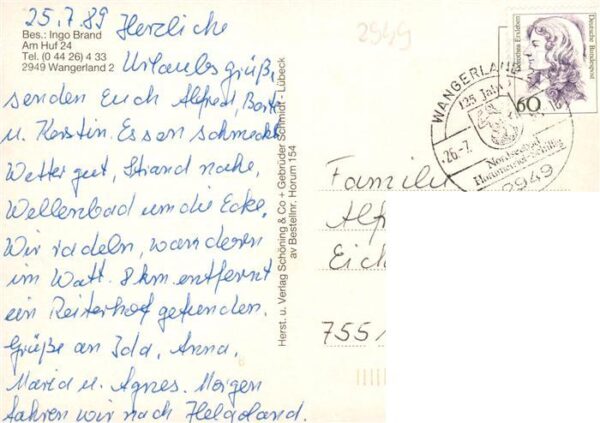 25.7.89 Herzliche
Bes.: Ingo Brand
Am Huf 24
Tel. (0 44 26) 4 33
2949 Wangerland 2
Urlaubsgrüße,
senden Euch Alfred,
u. Kerstin. Essen schmeckt
Wetter gut, Strand nahe,
Wellenbad um die Ecke.
Wir radeln, wandern
im Watt. 8 km entfernt
ein Reiterhof gefunden.
Grüße an Ida, Anna,
Maria u. Agnes. Morgen
fahren wir nach Helgoland.
Herst. u. Verlag Schöning & Co + Gebrüder Schmidt - Lübeck
av Bestellnr. Horum 154
2949
Dorothea Erxleben
Deutsche Bundespost
60
WANGERLAND
125 Jahre
-26.-7.
Nordseebad
Horumersiel-Schillig
2949
Familie
Alf
Eich
755